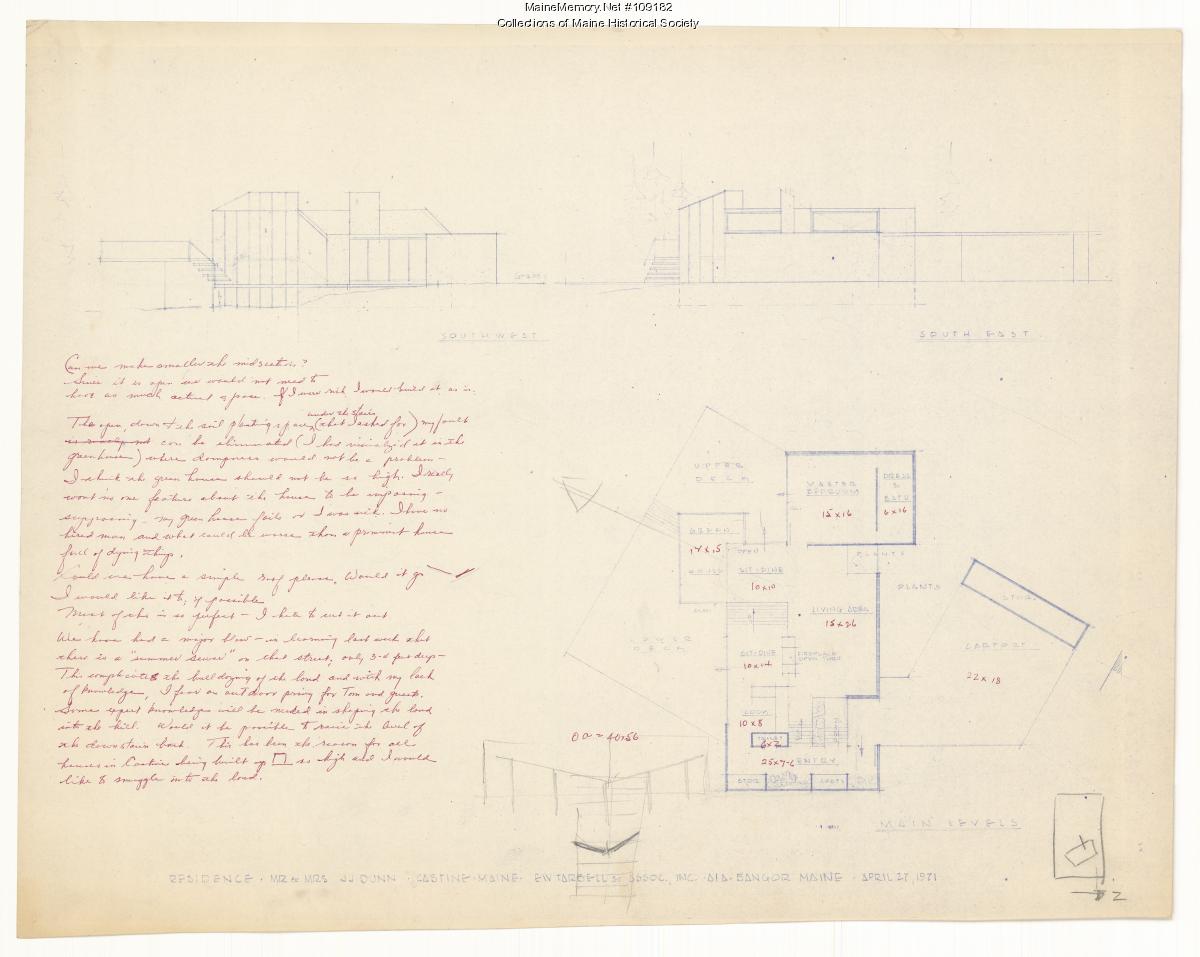 MaineMemory.Net #109182
Collections of Maine Historical Society
GRADE
SOUTHWEST
SOUTH EAST
Can we make smaller the midsection?
Since it is open we would not need to
have as much actual space. If I were rich I would build it as is.
under the stairs
The open, down to the soil planting spaces (that I asked for) my fault
is simply not can be eliminated (I had visualized it in the
greenhouse) where dampness would not be a problem -
I think the green house should not be so high. I really
want no one feature about the house to be imposing -
supposing - my green house fails or I was sick. I have no
hired man and what could be worse than a prominent house
full of dying things.
Could we have a simple roof please, Would it go
I would like it to, if possible
Most of this is so perfect - I hate to cut it out
We have had a major blow - in learning last week that
there is a "summer sewer" on that street, only 3-4 feet deep -
This complicates the bulldozing of the land and with my lack
of knowledge, I fear an outdoor privy for Tom and guests.
Some expert knowledge will be needed in shaping the land
into the hill. Would it be possible to raise the level of
the downstairs bath. This has been the reason for all
houses in Castine being built up so high and I would
like to snuggle into the land.
UPPER
DECK
MASTER
BEDROOM
15 x 16
DRESS
&
BATH
6 x 16
GREEN
14 x 15
HOUSE
OPEN
SIT-DINE
10 x 10
PLANTS
PLANTS
STOR.
LIVING AREA
15 x 26
LOWER
DECK
SIT-DINE
10 x 14
FIREPLACE
CARPORT
22 x 18
10 x 8
TOILET
6 x 3
25 x 7-6
ENTRY
STOR
OA = 40 x 56
MAIN LEVELS
RESIDENCE · MR & MRS JJ DUNN · CASTINE · MAINE · EW TARBELL & ASSOC., INC · AIA · BANGOR MAINE · APRIL 27, 1971
#2